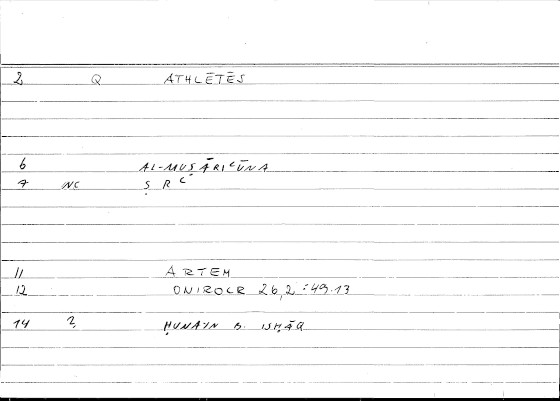 2 Q ATHLĒTĒS
6 AL-MUṢĀRIʿŪNA
7 NC Ṣ R ʿ
11 ARTEM
12 ONIROCR 26,2 : 49.13
14 2 ḤUNAYN B. ISḤĀQ